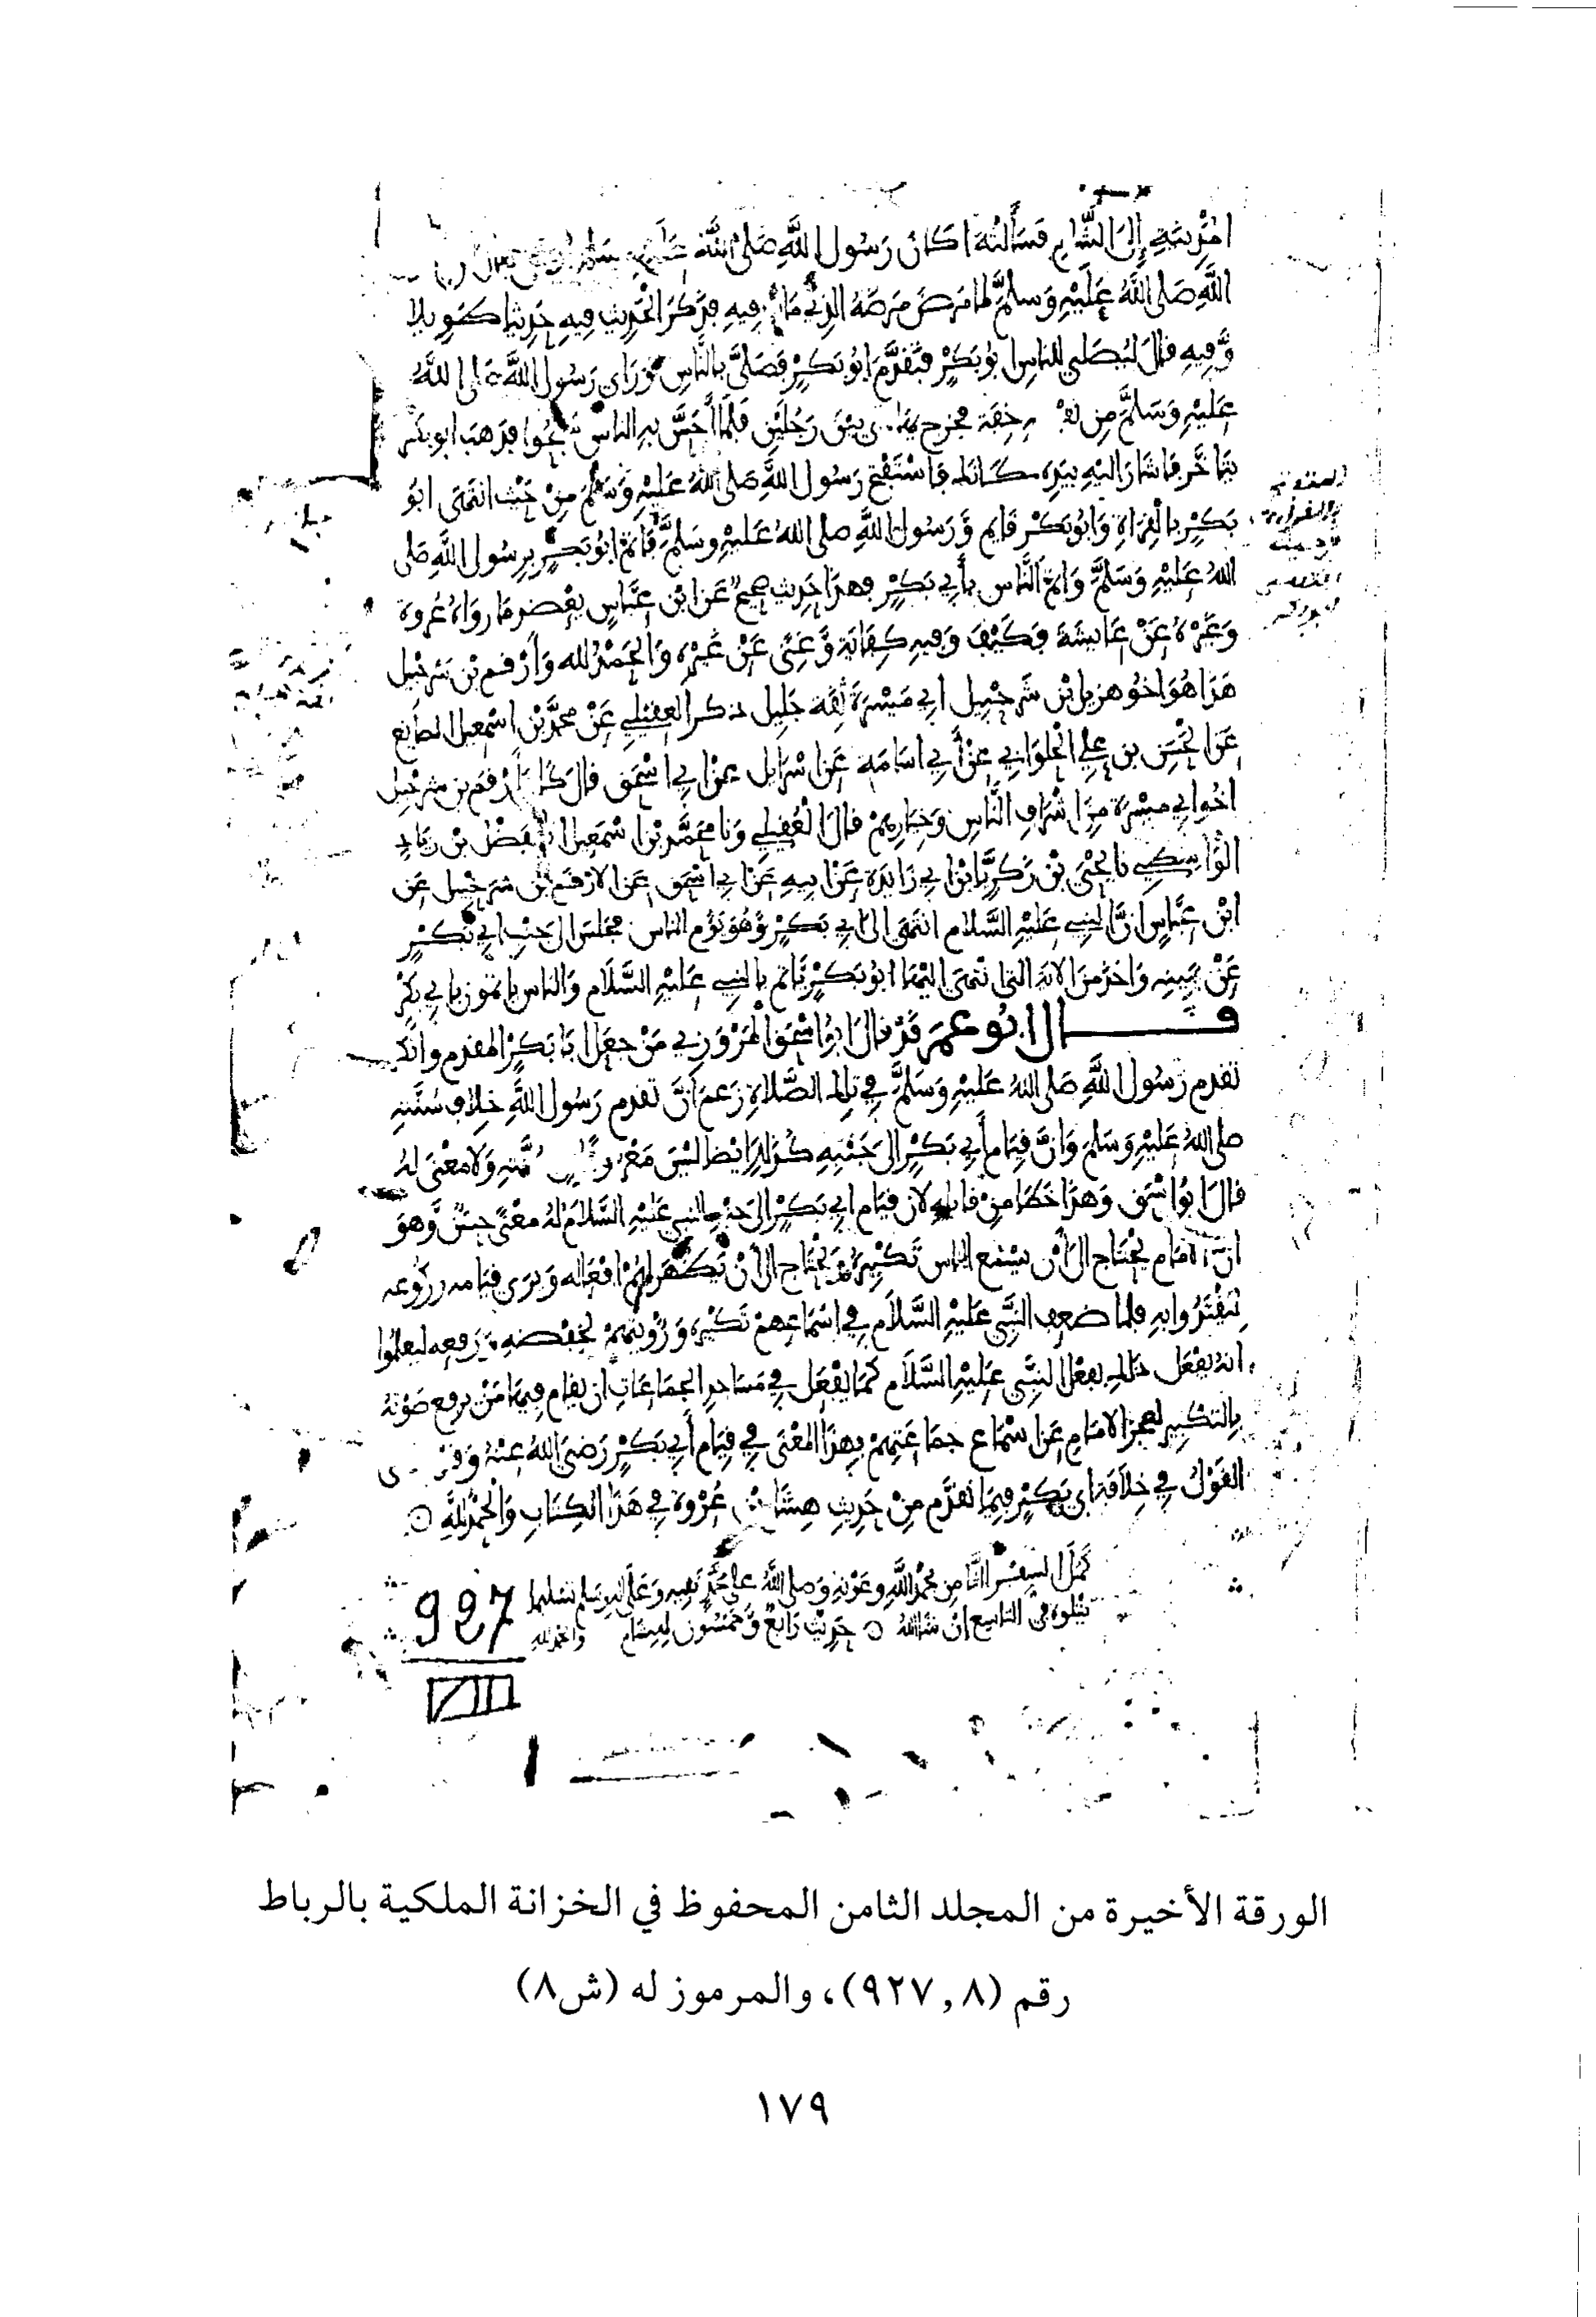 المدينة إلى الشام فسألته أكان رسول الله صلى الله عليه وسلم
الله صلى الله عليه وسلم لما مرض مرضه الذي مات فيه فذكر الحديث فيه حديثا طويلا
وفيه قال ليصلي للناس بو بكر فتقدم ابو بكر فصلى بالناس ورأى رسول الله صلى الله
عليه وسلم من خفة فخرج بين رجلين فلما أحس به الناس سبحوا فذهب ابو بكر
يتأخر فأشار اليه بيده مكانك فاستفتح رسول الله صلى الله عليه وسلم من حيث انتهى ابو
بكر بالقراة وابو بكر قايم ورسول الله صلى الله عليه وسلم فأتم ابو بكر برسول الله صلى
الله عليه وسلم وائتم الناس بأبي بكر فهذا حديث صحيح عن ابن عباس يعضد ما رواه عروة
وغيره عن عايشة وفيه كفاية وغنى عن غيره والحمد لله وأرقم بن شرحبيل
هذا هو اخو هزيل بن شرحبيل ابي ميسرة ثقة جليل ذكر العقيلي عن محمد بن اسمعيل الصايغ
عن الحسن بن علي الحلواني عن أبي اسامة عن اسرايل عن ابي اسحق قال كان أرقم بن شرحبيل
اخو ابي ميسرة من اشراف الناس وخيارهم قال العقيلي ونا محمد بن اسمعيل الفضل بن زياد
الواسطي نا يحيى بن زكريا بن ابي زايدة عن ابيه عن ابي اسحق عن الارقم بن شرحبيل عن
ابن عباس ان النبي عليه السلام انتهى الى ابي بكر وهو يؤم الناس فجلس الى جنب ابي بكر
عن يمينه واخذ من الاية التي انتهى اليها ابو بكر يأتم بالنبي عليه السلام والناس ياتمون بابي بكر
قال ابو عمر قد قال ابو اسحق المروزي من جعل ابا بكر المقدم وانكر
تقدم رسول الله صلى الله عليه وسلم في تلك الصلاة زعم أن تقدم رسول الله خلاف سنته
صلى الله عليه وسلم وان قيام أبي بكر الى جنبه كذلك ايضا ليس ولا معنى له
قال ابو اسحق وهذا خطأ من قايله لان قيام ابي بكر الى جنب النبي عليه السلام له معنى حسن وهو
ان الامام يحتاج الى أن يسمع الناس تكبيره ويحتاج الى أن يظهر لهم افعاله ويرى قيامه وركوعه
ليقتدوا به فلما ضعف النبي عليه السلام في اسماعهم تكبيره ورؤيتهم لخفضه ورفعه ليعلموا
انه يفعل ذلك بفعل النبي عليه السلام كما يفعل في مساجد الجماعات ان يقام فيها من يرفع صوته
بالتكبير لعجز الامام عن اسماع جماعتهم فهذا المعنى في قيام أبي بكر رضي الله عنه
القول في خلافة ابي بكر فيما تقدم من حديث هشام بن عروة في هذا الكتاب والحمد لله
كمل السفر الثامن بحمد الله وعونه وصلى الله على محمد نبيه وعلى اله وسلم تسليما
يتلوه في التاسع ان شاء الله حديث رابع وخمسون لهشام والحمد لله
927
VIII
الورقة الأخيرة من المجلد الثامن المحفوظ في الخزانة الملكية بالرباط
رقم (٩٢٧,٨)، والمرموز له (ش٨)
١٧٩